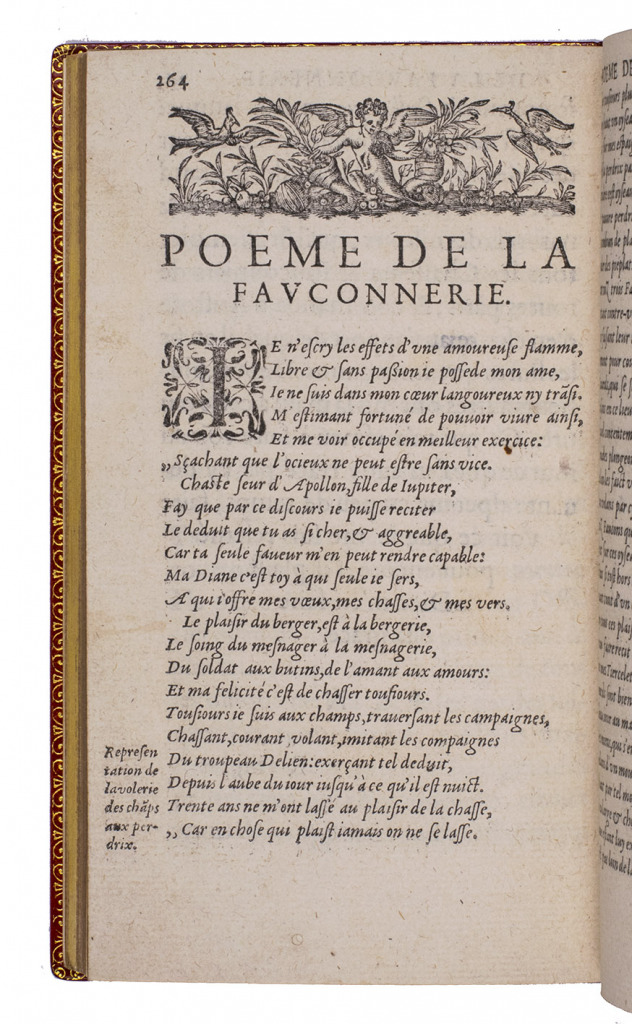 264
POEME DE LA
FAVCONNERIE.
IE n'eſcry les effets d'vne amoureuſe flamme,
Libre & ſans paſſion ie poſſede mon ame,
Ie ne ſuis dans mon cœur langoureux ny trãſi.
M'eſtimant fortuné de pouuoir viure ainſi,
Et me voir occupé en meilleur exercice:
„Sçachant que l'ocieux ne peut eſtre ſans vice.
Chaſte ſeur d'Apollon, fille de Iupiter,
Fay que par ce diſcours ie puiſſe reciter
Le deduit que tu as ſi cher, & aggreable,
Car ta ſeule faueur m'en peut rendre capable:
Ma Diane c'eſt toy à qui ſeule ie ſers,
A qui i'offre mes vœux, mes chaſſes, & mes vers.
Le plaiſir du berger, eſt à la bergerie,
Le ſoing du meſnager à la meſnagerie,
Du ſoldat aux butins, de l'amant aux amours:
Et ma felicité c'eſt de chaſſer touſiours.
Touſiours ie ſuis aux champs, trauerſant les campaignes,
Chaſſant, courant, volant, imitant les compaignes
Du troupeau Delien: exerçant tel deduit,
Depuis l'aube du iour iuſqu'à ce qu'il eſt nuict.
Trente ans ne m'ont laſſé au plaiſir de la chaſſe,
„Car en choſe qui plaiſt iamais on ne ſe laſſe.
Repreſen
tation de
la volerie
des chãps
aux per-
drix.